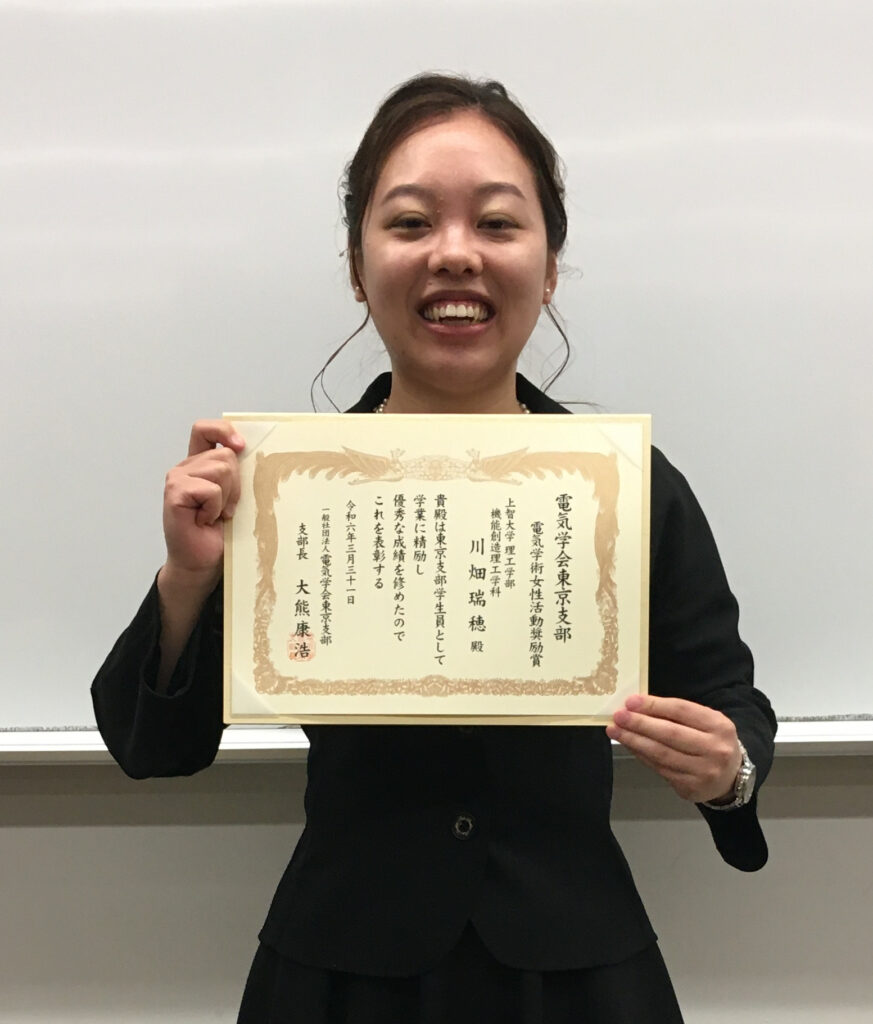 電気学会東京支部
電気学術女性活動奨励賞
上智大学 理工学部
機能創造理工学科
川畑瑞穂 殿
貴殿は東京支部学生員として
学業に精励し
優秀な成績を修めたので
これを表彰する
令和六年三月三十一日
一般社団法人 電気学会東京支部
支部長 大熊康浩